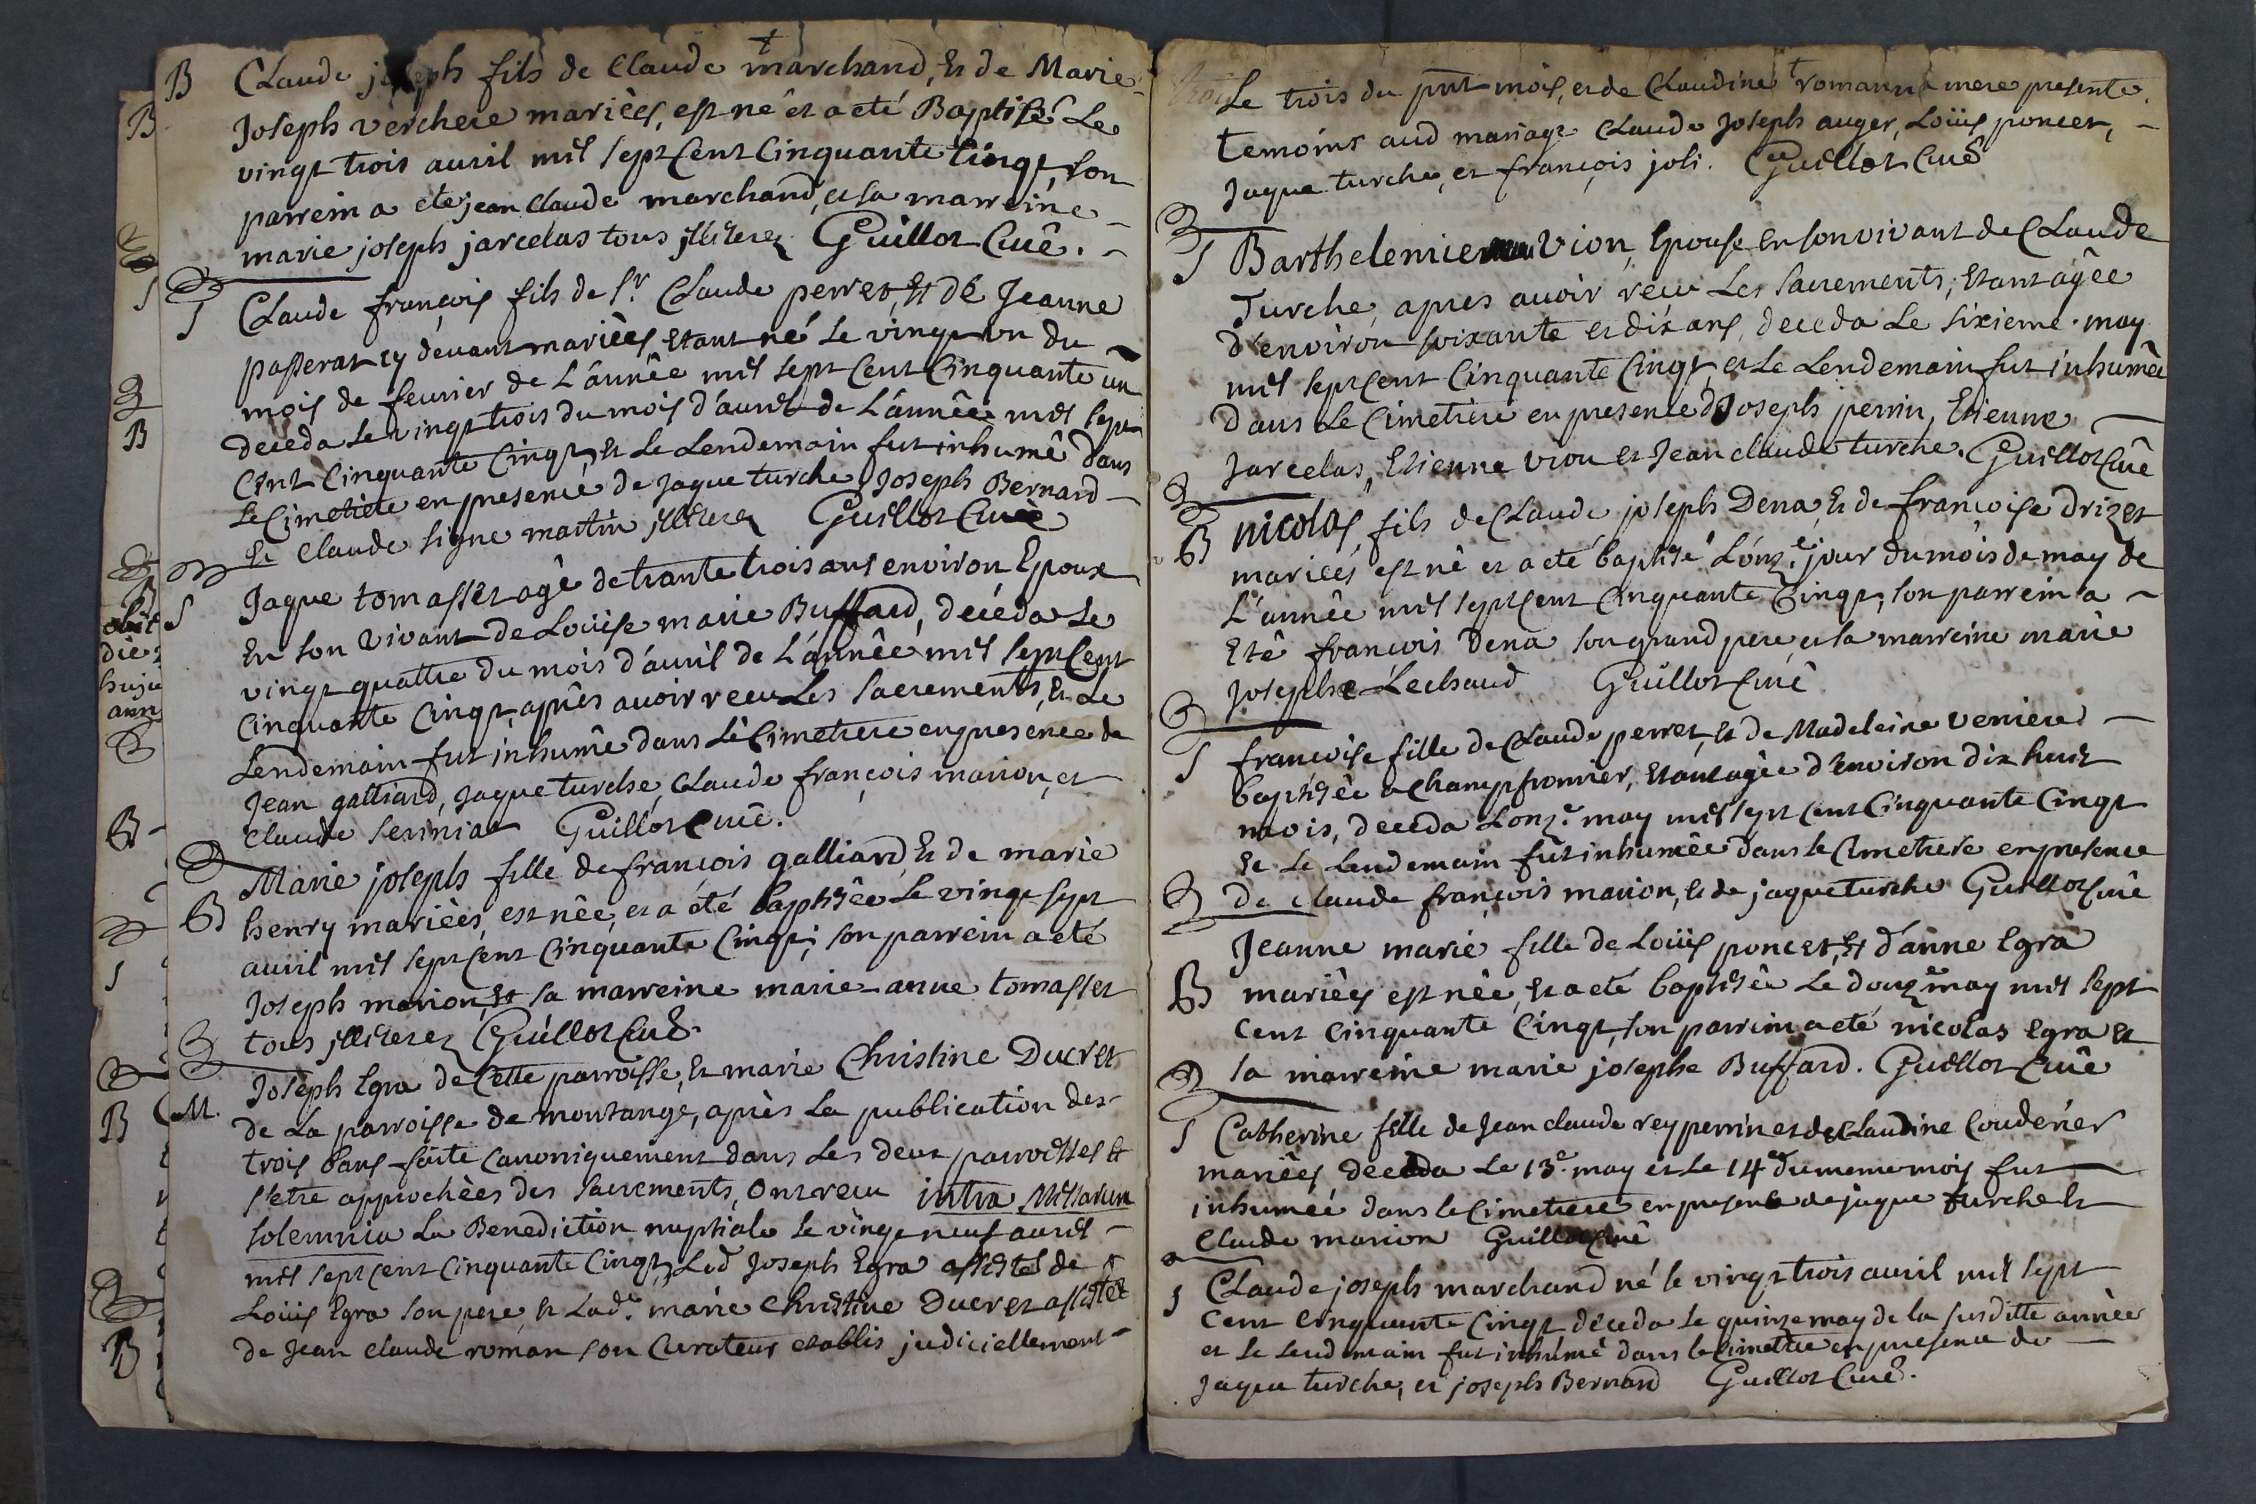 B Claude joseph fils de Claude marchand, Et de Marie
Joseph verchere mariéés, est né et a eté Baptisé Le
vingt trois auril mil sept Cent Cinquante Cinqt, son
parrein a eté jean claude marchand, et sa marreine
marie joseph jarcelas tous jlliterez Guillot Curé.
S Claude françois fils de Sr. Claude perret, Et de Jeanne
passerat cy deuant mariéés Etant né le vingt un du
mois de feurier de L'année mil sept Cent Cinquante un
deceda le vingt trois du mois d'auril de L'année mil sept
Cent Cinquante Cinqt, Et Le Lendemain fut inhumé dans
Le Cimetiere en presence de jaque turche, Joseph Bernard
Et Claude signe martin jlliterez Guillot Curé
S Jaque tomasset agé de trante trois ans environ Epoux
En son vivant de Loüise marie Buffard, deceda Le
vingt quattre du mois d'auril de L'année mil sept Cent
Cinquante Cinqt, aprés auoir reçu Les sacrements, Et Le
Lendemain fut inhumé dans Le Cimetiere en presence de
Jean galliard, Jaque turche, Claude françois marion, et
Claude seriniat Guillot Curé.
B Marie joseph fille de françois galliard, Et de marie
henry mariéés, est née, et a été baptisée Le vingt sept
auril mil sept Cent Cinquante Cinqt; son parrein a eté
Joseph marion, Et sa marreine marie-anne tomasset
tous jlliterez Guillot Curé.
M. Joseph Egra de Cette parroisse, Et marie Christine Ducret
de La parroisse de montange, aprés La publication des
trois bans faite canoniquement dans Les deux parroisses Et
s'etre approchées des sacrements, ont reçu intra Missarum
solemnia La Benediction nuptiale le vingt neuf auril
mil sept Cent Cinquante Cinqt, Led Joseph Egra assisté de
Loüis Egra son pere, Et Lade. marie Christine Ducret assistée
de Jean claude roman son Curateur etablis judiciellement
Le trois du pnt mois, et de Claudine romanne mere presente.
temoins aud mariage Claude Joseph auger, Loüis poncet,
Jaque turche, et françois joli. Guillot Curé
S Barthelemie vion, Epouse En son vivant de Claude
Turche, apres auoir réçu Les sacrements, Etant agée
d'environ soixante et dix ans, deceda Le sixieme may
mil sept cent Cinquante Cinqt, et Le Lendemain fut inhumée
dans Le Cimetiere en presence d Joseph perrin, Etienne
Jarcelas, Etienne vion et Jean claude turche. Guillot Curé
B nicolas, fils de Claude joseph Dena, Et de françoise drizet
mariéés, est né et a eté baptisé L'onze. jour du mois de may de
L'année mil sept Cent Cinquante Cinqt, son parrein a
Eté françois Dena son grand pere, et sa marreine marie
Josephe Lechaud Guillot Curé
S françoise fille de Claude perret, Et de Madeleine venierd
baptisée a Champfromier, Etant agée d'environ dix huit
mois, deceda L'onze may mil sept cent Cinquante Cinqt
Et Le Lendemain fut inhumée dans le Cimetiere en presence
de claude françois marion, Et de jaque turche Guillot Curé
Jeanne marie fille de Loüis poncet, Et d'anne Egra
B mariéés est née, Et a eté baptisée Le douze may mil sept
Cent Cinquante Cinqt, son parrein a eté nicolas Egra Et
sa marreine marie josephe Buffard. Guillot Curé
S Catherine fille de Jean claude rey perrin et de Claudine Couderier
mariéés deceda Le 13e. may et Le 14e du meme mois fut
inhumée dans le Cimetiere en presence de jaque turche Et
Claude marion Guillot Curé
S Claude joseph marchand né le vingt trois auril mil sept
Cent Cinquante Cinqt déceda le quinze may de la susditte année
et Le lendemain fut inhumé dans le cimetiere en presence de
jaque turche, et joseph Bernard Guillot Curé.